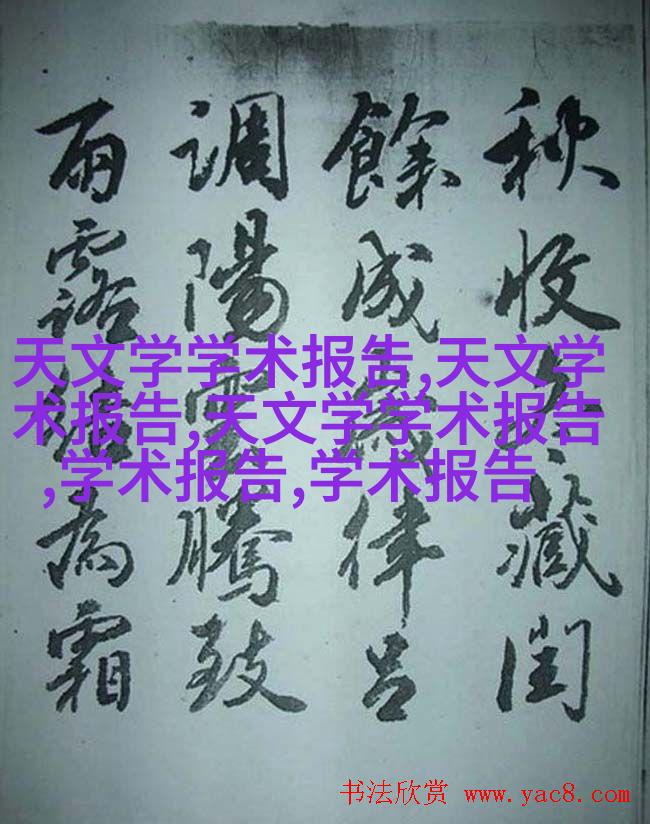 秋收冬藏閏
餘成歲律呂
調陽雲騰致
雨露結為霜
天文学学术报告,天文学
术报告,天文学学术报告
,学术报告,学术报告
书法欣赏 www.yac8.com